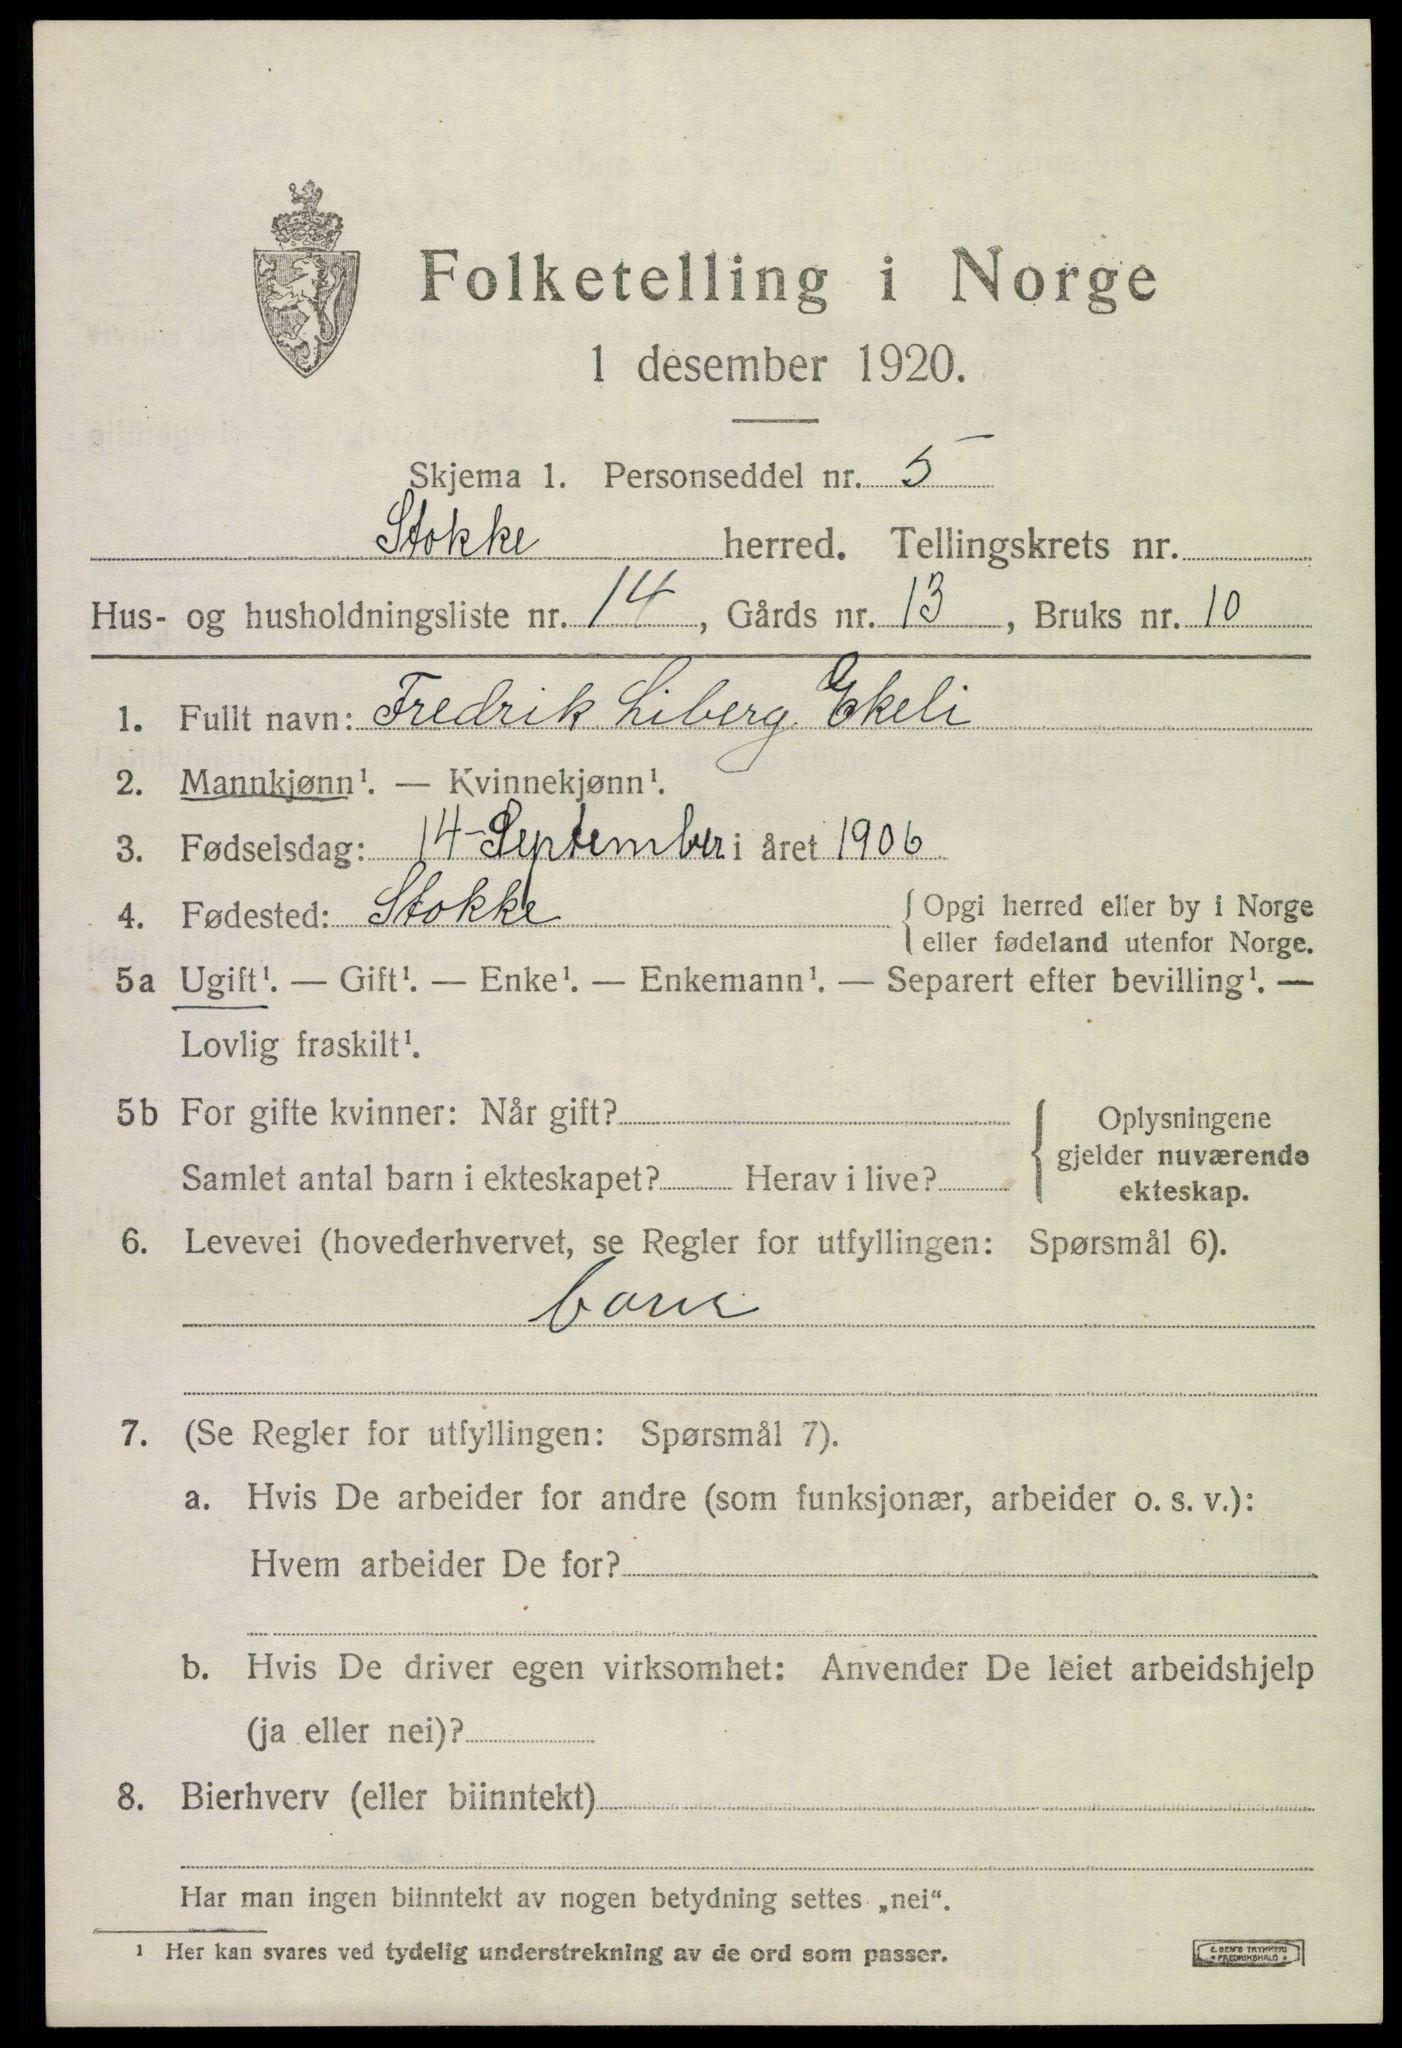 Folketelling i Norge
1 desember 1920.
Skjema 1. Personseddel nr. 5
Stokke herred. Tellingskrets nr.
Hus- og husholdningsliste nr. 14, Gårds nr. 13, Bruks nr. 10
1. Fullt navn: Fredrik Liberg Ekeli
2. Mannkjønn¹. — Kvinnekjønn¹.
3. Fødselsdag: 14 September i året 1906
4. Fødested: Stokke { Opgi herred eller by i Norge
eller fødeland utenfor Norge.
5a Ugift¹. — Gift¹. — Enke¹. — Enkemann¹. — Separert efter bevilling¹. —
Lovlig fraskilt¹.
5b For gifte kvinner: Når gift?
Samlet antal barn i ekteskapet? Herav i live?
{ Oplysningene
gjelder nuværende
ekteskap.
6. Levevei (hovederhvervet, se Regler for utfyllingen: Spørsmål 6).
barn
7. (Se Regler for utfyllingen: Spørsmål 7).
a. Hvis De arbeider for andre (som funksjonær, arbeider o. s. v.):
Hvem arbeider De for?
b. Hvis De driver egen virksomhet: Anvender De leiet arbeidshjelp
(ja eller nei)?
8. Bierhverv (eller biinntekt)
Har man ingen biinntekt av nogen betydning settes „nei“.
¹ Her kan svares ved tydelig understrekning av de ord som passer.
E. SEM'S TRYKKERI
• FREDRIKSHALD •